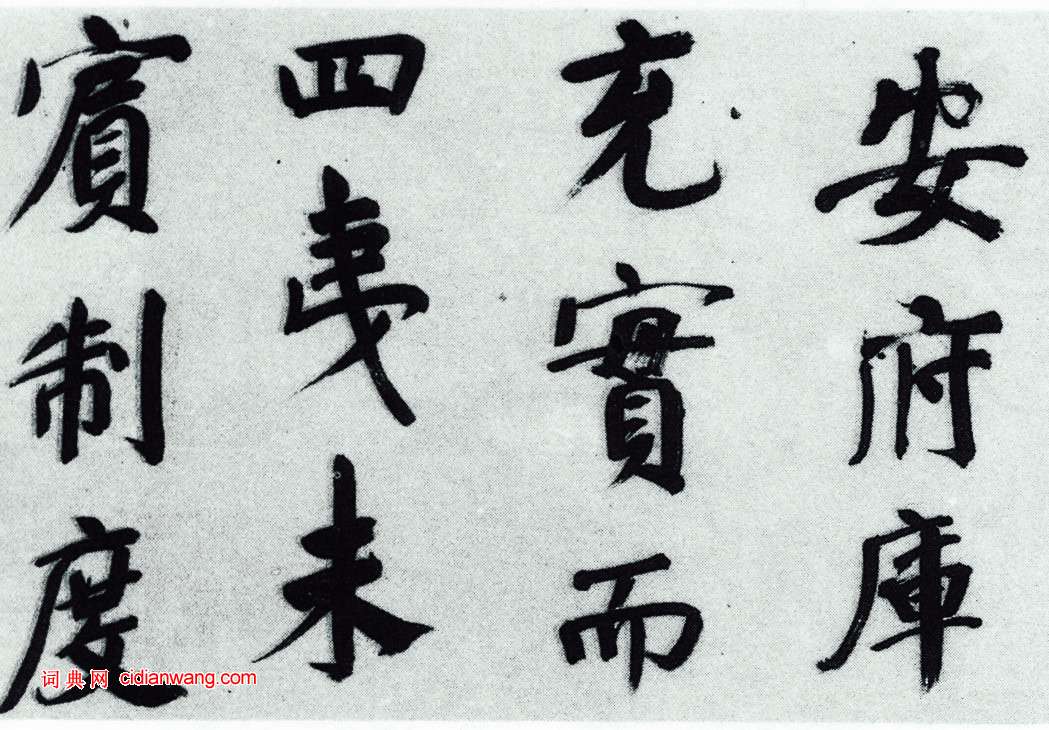 安府庫
充實而
四夷未
賓制度
词典网 cidianwang.com